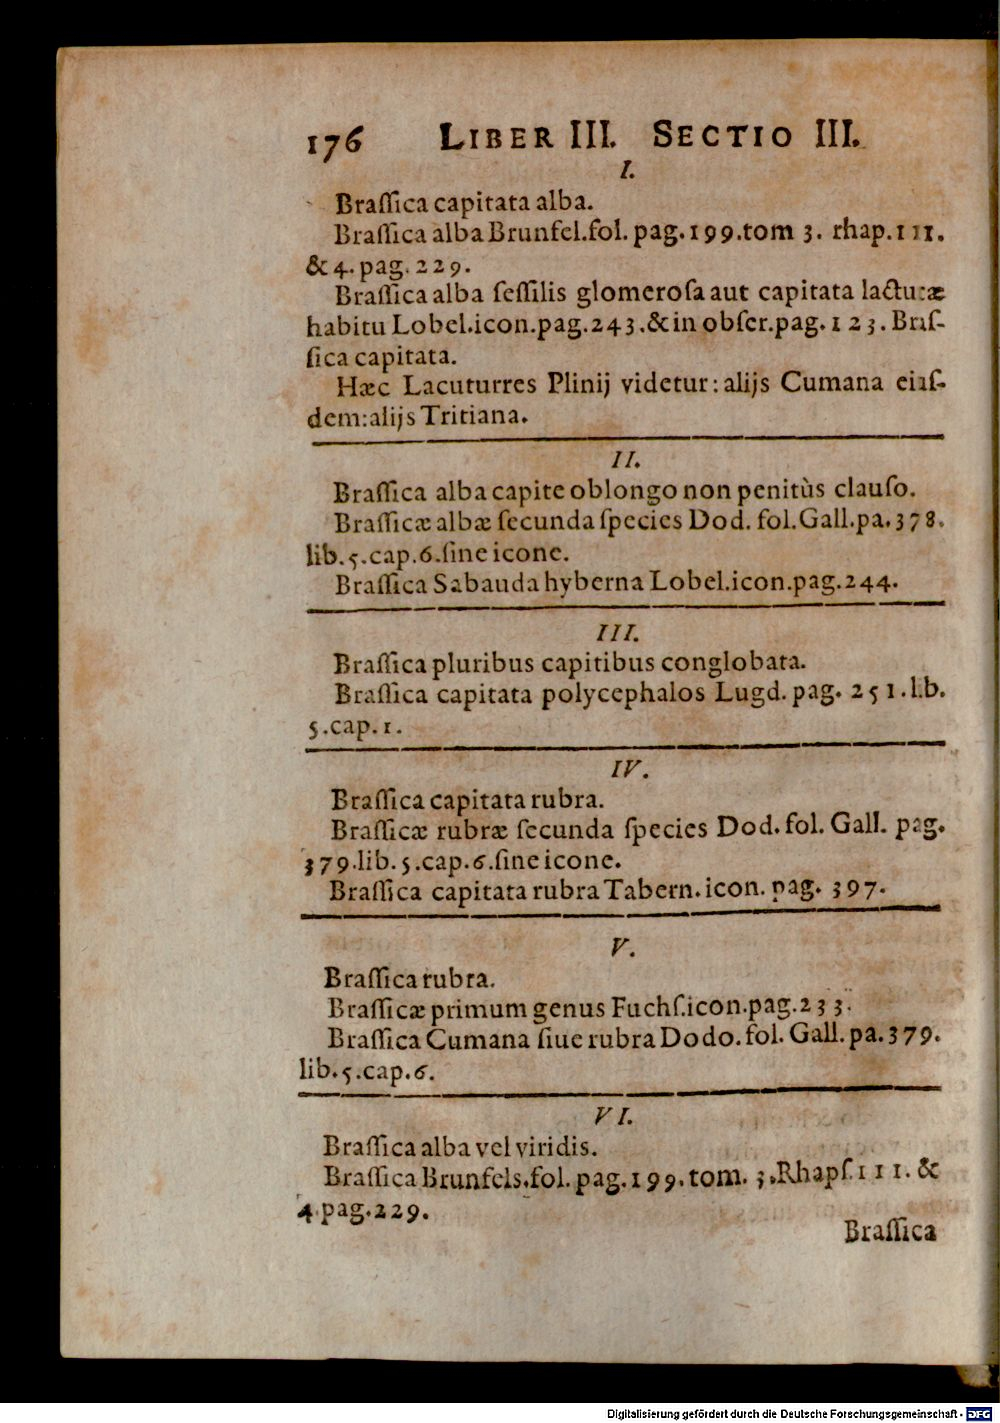 176 LIBER III. SECTIO III.
I.
Braſſica capitata alba.
Braſſica alba Brunfel.fol. pag.199.tom 3. rhap.111.
& 4. pag. 229.
Braſſica alba ſeſſilis glomeroſa aut capitata lactucæ
habitu Lobel.icon.pag.243.& in obſer.pag.123. Braſ-
ſica capitata.
Hæc Lacuturres Plinij videtur: alijs Cumana eiuſ-
dem: alijs Tritiana.
II.
Braſſica alba capite oblongo non penitùs clauſo.
Braſſicæ albæ ſecunda ſpecies Dod. fol.Gall.pa.378.
lib.5.cap.6.ſine icone.
Braſſica Sabauda hyberna Lobel.icon.pag.244.
III.
Braſſica pluribus capitibus conglobata.
Braſſica capitata polycephalos Lugd. pag. 251.lib.
5.cap.1.
IV.
Braſſica capitata rubra.
Braſſicæ rubræ ſecunda ſpecies Dod. fol. Gall. pag.
379.lib.5.cap.6.ſine icone.
Braſſica capitata rubra Tabern.icon. pag. 397.
V.
Braſſica rubra.
Braſſicæ primum genus Fuchſ.icon.pag.233.
Braſſica Cumana ſiue rubra Dodo.fol. Gall.pa.379.
lib.5.cap.6.
VI.
Braſſica alba vel viridis.
Braſſica Brunfels.fol. pag.199.tom. 3.Rhapſ.111. &
4.pag.229.
Braſſica
Digitalisierung gefördert durch die Deutsche Forschungsgemeinschaft - DFG